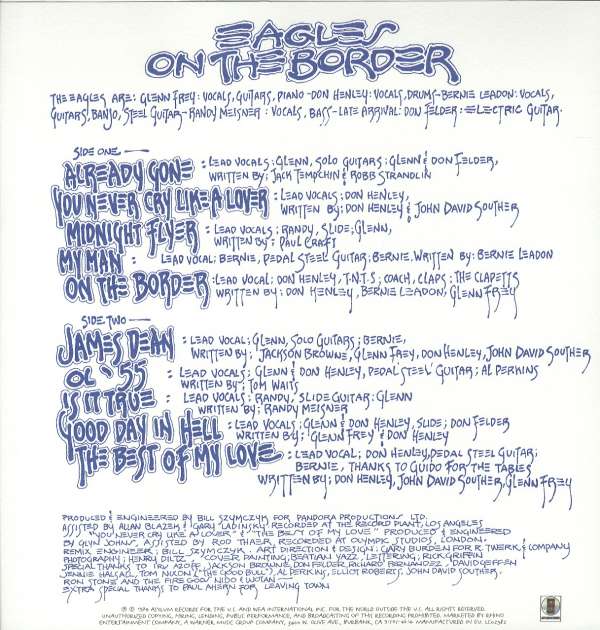 EAGLES
ON THE BORDER
THE EAGLES ARE: GLENN FREY: VOCALS, GUITARS, PIANO-DON HENLEY: VOCALS, DRUMS-BERNIE LEADON: VOCALS,
GUITARS, BANJO, STEEL GUITAR-RANDY MEISNER: VOCALS, BASS-LATE ARRIVAL: DON FELDER: ELECTRIC GUITAR.
SIDE ONE—
ALREADY GONE : LEAD VOCALS: GLENN, SOLO GUITARS: GLENN & DON FELDER,
WRITTEN BY: JACK TEMPCHIN & ROBB STRANDLIN
YOU NEVER CRY LIKE A LOVER : LEAD VOCALS: DON HENLEY,
WRITTEN BY: DON HENLEY & JOHN DAVID SOUTHER
MIDNIGHT FLYER : LEAD VOCALS: RANDY, SLIDE: GLENN,
WRITTEN BY: PAUL CRAFT
MY MAN : LEAD VOCAL: BERNIE, PEDAL STEEL GUITAR: BERNIE. WRITTEN BY: BERNIE LEADON
ON THE BORDER : LEAD VOCAL: DON HENLEY, T.N.T.S: COACH, CLAPS: THE CLAPETTS
WRITTEN BY: DON HENLEY, BERNIE LEADON, GLENN FREY
SIDE TWO—
JAMES DEAN : LEAD VOCAL: GLENN, SOLO GUITARS: BERNIE,
WRITTEN BY: JACKSON BROWNE, GLENN FREY, DON HENLEY, JOHN DAVID SOUTHER
OL '55 : LEAD VOCALS: GLENN & DON HENLEY, PEDAL STEEL GUITAR: AL PERKINS
WRITTEN BY: TOM WAITS
IS IT TRUE : LEAD VOCALS: RANDY, SLIDE GUITAR: GLENN
WRITTEN BY: RANDY MEISNER
GOOD DAY IN HELL : LEAD VOCALS: GLENN & DON HENLEY, SLIDE: DON FELDER
WRITTEN BY: GLENN FREY & DON HENLEY
THE BEST OF MY LOVE : LEAD VOCAL: DON HENLEY, PEDAL STEEL GUITAR:
BERNIE, THANKS TO GUIDO FOR THE TABLES
WRITTEN BY: DON HENLEY, JOHN DAVID SOUTHER, GLENN FREY
PRODUCED & ENGINEERED BY BILL SZYMCZYK FOR PANDORA PRODUCTIONS LTD.
ASSISTED BY ALLAN BLAZEK & GARY LADINSKY RECORDED AT THE RECORD PLANT, LOS ANGELES
"YOU NEVER CRY LIKE A LOVER" & "THE BEST OF MY LOVE" PRODUCED & ENGINEERED
BY GLYN JOHNS, ASSISTED BY ROD THAER, RECORDED AT OLYMPIC STUDIOS, LONDON.
REMIX ENGINEER: BILL SZYMCZYK. ART DIRECTION & DESIGN: GARY BURDEN FOR R. TWERK & COMPANY
PHOTOGRAPHY: HENRY DILTZ. COVER PAINTING: BEATIAN YAZZ, LETTERING: RICK GRIFFIN
SPECIAL THANKS TO IRV AZOFF, JACKSON BROWNE, DON FELDER, RICHARD FERNANDEZ, DAVID GEFFEN
JENNIE HALSALL, TOM NIXON ("THE GOOD BULL"), AL PERKINS, ELLIOT ROBERTS, JOHN DAVID SOUTHER,
RON STONE AND THE FIRE GOD NIDO & WOTAN—
EXTRA SPECIAL THANKS TO PAUL AHERN FOR LEAVING TOWN
℗ © 1974 ASYLUM RECORDS FOR THE U.S. AND WEA INTERNATIONAL INC. FOR THE WORLD OUTSIDE THE U.S. ALL RIGHTS RESERVED.
UNAUTHORIZED COPYING, HIRING, LENDING, PUBLIC PERFORMANCE, AND BROADCASTING OF THIS RECORDING PROHIBITED. MARKETED BY RHINO
ENTERTAINMENT COMPANY, A WARNER MUSIC GROUP COMPANY, W. OLIVE AVE., BURBANK, CA MANUFACTURED IN EU.